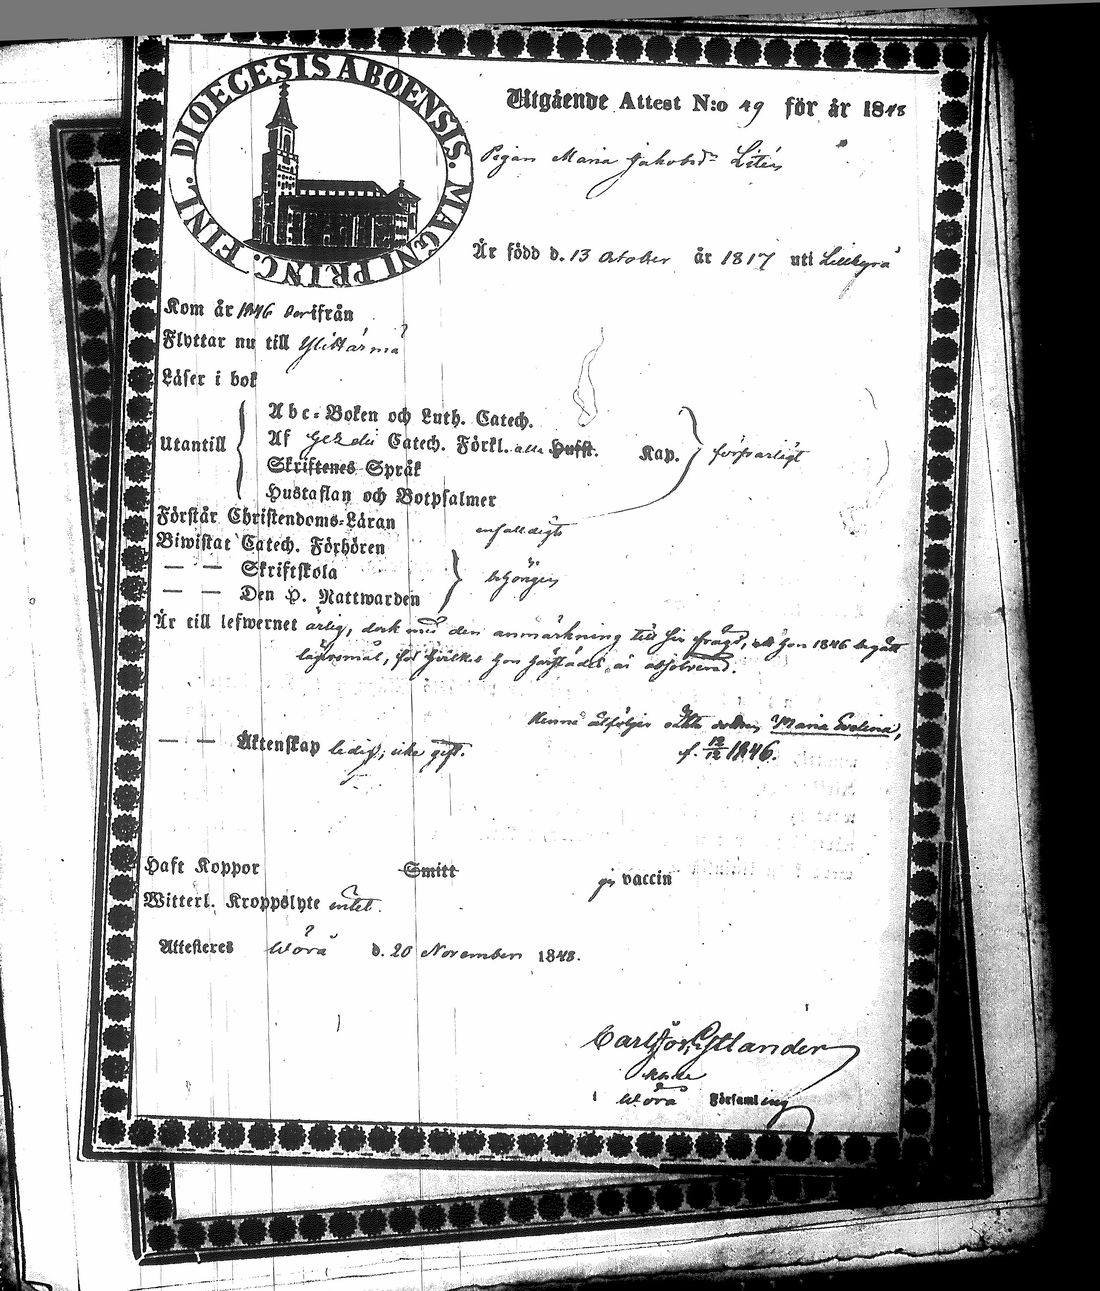 DIOECESIS ABOENSIS. MAGNI PRINC. FINL.
Utgående Attest N:o 49 för år 1848
Pigan Maria Jakobsdr Litén
Är född d. 13 October år 1817 uti Lillkyrå
Kom år 1846 derifrån
Flyttar nu till Ylihärmä
Läser i bok
Abc-Boken och Luth. Catech.
Utantill Af Catech. Förkl. alla Hufst. Kap. försvarligt
Skriftenes Språk
Hustaflan och Botpsalmer
Förstår Christendoms-Läran enfalldigt
Biwistat Catech. Förhören
— — Skriftskola
— — Den H. Nattwarden
Är till lefwernet ärlig, dock med den anmärkning till sin frägd, att hon 1846 begått
lägersmål, för hvilket hon härstädes är absolverad.
Henne åtföljer oäkta dottren Maria Evelina,
f. 12/12 1846.
— — Äktenskap ledig, icke gift.
Haft Koppor Smitt vaccin
Witterl. Kroppslyte intet.
Attesteras Wörå d. 20 November 1848.
i Wörå Församling